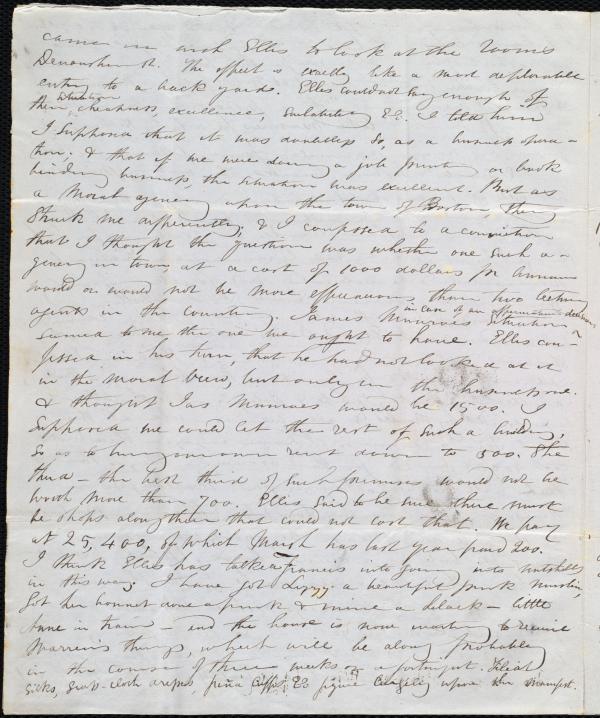 came in with Ellis to look at the rooms
Devonshire St. The effect is exactly like a most deplorable
entry to a back yard. Ellis could not say enough of
their situation, cheapness, excellence, salubrity &c. I told him
I supposed that it was doubtless so, as a business opera-
tion, & that if we were doing a job print or book
binding business, the situation was excellent. But as
a Moral agency upon the town of Boston, they
struck me differently, & I confessed to a conviction
that I thought the question was whether one such a-
gency in town, at a cost of 1000 dollars per annum
would or would not be more efficacious than two lecturing
agents in the country. James Munroe's situation in case of an decision
seemed to me the one we ought to have. Ellis con-
fessed in his turn, that he had not looked at it
in the moral view, but only in the business one.
& thought Jas Munroes would be 1500. I
supposed we could let the rest of such a building,
so as to bring our own rent down to 500. She
the best third of such premises would not be
worth more than 700. Ellis said to be sure there must
be shops along there that could not cost that. We pay
at 25, 400, of which March has last year paid 200.
I think Ellis has talked Francis into going into nutshells
in this way. I have got Lizzy a beautiful pink muslin,
Got her bonnet done up pink & mine a black – little
Anne in train – and the house is now waiting to receive
Warren's things, which will be along probably
in the course of three weeks or a fortnight.
silks, grass-cloth piña &c upon the manifest.